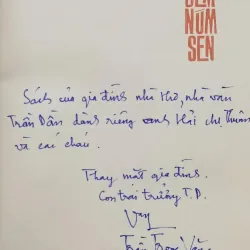 ĐÊM
NÚM
SEN
Sách của gia đình nhà thơ, nhà văn
Trần Dần dành riêng anh Hải chị Thuân
và các cháu.
Thay mặt gia đình.
Con trai trưởng T.D.
Trần Trọng Văn